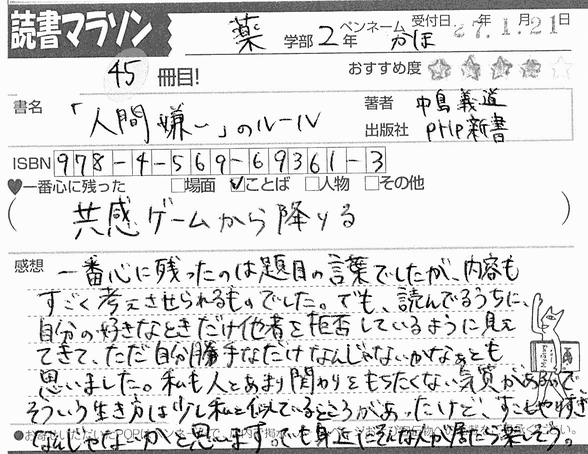 読書マラソン
薬 学部 2年 ペンネーム かほ 受付日 27年1月21日
45 冊目! おすすめ度
書名 「人間嫌い」のルール 著者 中島義道
出版社 PHP新書
ISBN 978-4-569-69361-3
一番心に残った □場面 ☑ことば □人物 □その他
(共感ゲームから降りる)
感想 一番心に残ったのは題目の言葉でしたが、内容も
すごく考えさせられるものでした。でも、読んでるうちに、
自分の好きなときだけ他者を拒否しているように見え
てきて、ただ自分勝手なだけなんじゃないかなぁとも
思いました。私も人とあまり関わりをもちたくない気質があるので
そういう生き方は少し私と似ているところがあったけど、すこしやりすぎ
なんじゃないかと思います。でも身近にそんな人が居たら楽しそう。